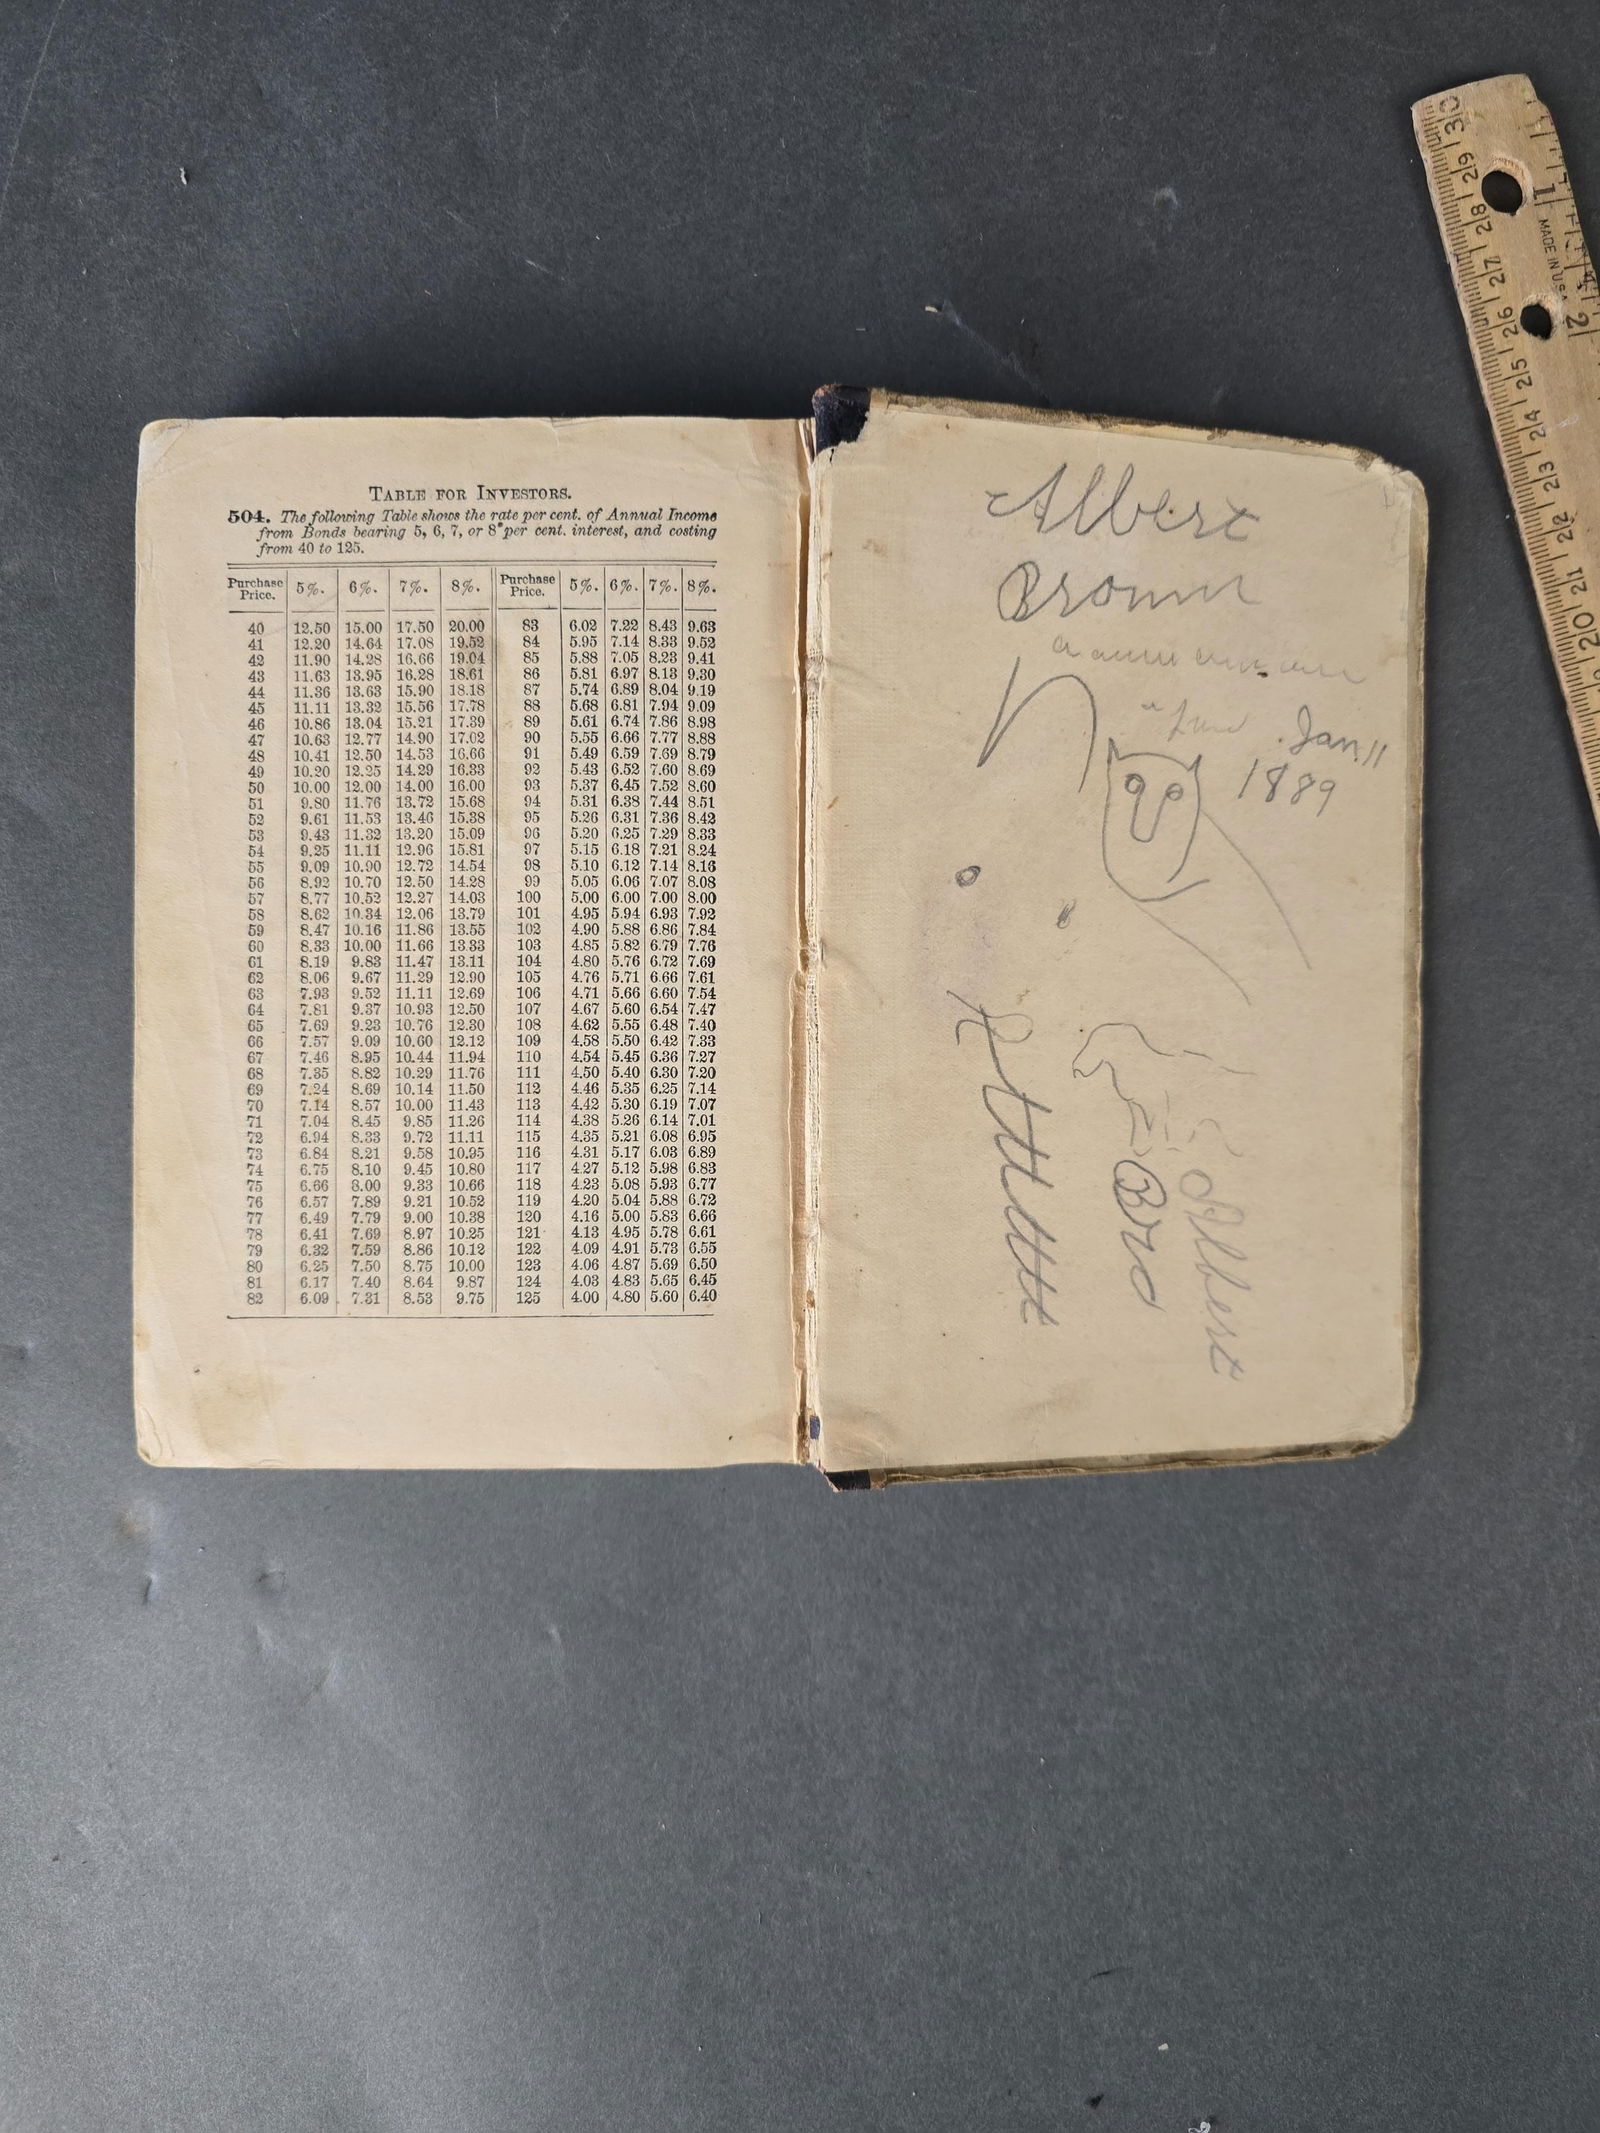 TABLE FOR INVESTORS.
504. The following Table shows the rate per cent. of Annual Income
from Bonds bearing 5, 6, 7, or 8 per cent. interest, and costing
from 40 to 125.
Purchase Price. 5%. 6%. 7%. 8%. Purchase Price. 5%. 6%. 7%. 8%.
40 12.50 15.00 17.50 20.00 83 6.02 7.22 8.43 9.63
41 12.20 14.64 17.08 19.52 84 5.95 7.14 8.33 9.52
42 11.90 14.28 16.66 19.04 85 5.88 7.05 8.23 9.41
43 11.63 13.95 16.28 18.61 86 5.81 6.97 8.13 9.30
44 11.36 13.63 15.90 18.18 87 5.74 6.89 8.04 9.19
45 11.11 13.32 15.56 17.78 88 5.68 6.81 7.94 9.09
46 10.86 13.04 15.21 17.39 89 5.61 6.74 7.86 8.98
47 10.63 12.77 14.90 17.02 90 5.55 6.66 7.77 8.88
48 10.41 12.50 14.53 16.66 91 5.49 6.59 7.69 8.79
49 10.20 12.25 14.29 16.33 92 5.43 6.52 7.60 8.69
50 10.00 12.00 14.00 16.00 93 5.37 6.45 7.52 8.60
51 9.80 11.76 13.72 15.68 94 5.31 6.38 7.44 8.51
52 9.61 11.53 13.46 15.38 95 5.26 6.31 7.36 8.42
53 9.43 11.32 13.20 15.09 96 5.20 6.25 7.29 8.33
54 9.25 11.11 12.96 15.81 97 5.15 6.18 7.21 8.24
55 9.09 10.90 12.72 14.54 98 5.10 6.12 7.14 8.16
56 8.92 10.70 12.50 14.28 99 5.05 6.06 7.07 8.08
57 8.77 10.52 12.27 14.03 100 5.00 6.00 7.00 8.00
58 8.62 10.34 12.06 13.79 101 4.95 5.94 6.93 7.92
59 8.47 10.16 11.86 13.55 102 4.90 5.88 6.86 7.84
60 8.33 10.00 11.66 13.33 103 4.85 5.82 6.79 7.76
61 8.19 9.83 11.47 13.11 104 4.80 5.76 6.72 7.69
62 8.06 9.67 11.29 12.90 105 4.76 5.71 6.66 7.61
63 7.93 9.52 11.11 12.69 106 4.71 5.66 6.60 7.54
64 7.81 9.37 10.93 12.50 107 4.67 5.60 6.54 7.47
65 7.69 9.23 10.76 12.30 108 4.62 5.55 6.48 7.40
66 7.57 9.09 10.60 12.12 109 4.58 5.50 6.42 7.33
67 7.46 8.95 10.44 11.94 110 4.54 5.45 6.36 7.27
68 7.35 8.82 10.29 11.76 111 4.50 5.40 6.30 7.20
69 7.24 8.69 10.14 11.50 112 4.46 5.35 6.25 7.14
70 7.14 8.57 10.00 11.43 113 4.42 5.30 6.19 7.07
71 7.04 8.45 9.85 11.26 114 4.38 5.26 6.14 7.01
72 6.94 8.33 9.72 11.11 115 4.35 5.21 6.08 6.95
73 6.84 8.21 9.58 10.95 116 4.31 5.17 6.03 6.89
74 6.75 8.10 9.45 10.80 117 4.27 5.12 5.98 6.83
75 6.66 8.00 9.33 10.66 118 4.23 5.08 5.93 6.77
76 6.57 7.89 9.21 10.52 119 4.20 5.04 5.88 6.72
77 6.49 7.79 9.00 10.38 120 4.16 5.00 5.83 6.66
78 6.41 7.69 8.97 10.25 121 4.13 4.95 5.78 6.61
79 6.32 7.59 8.86 10.12 122 4.09 4.91 5.73 6.55
80 6.25 7.50 8.75 10.00 123 4.06 4.87 5.69 6.50
81 6.17 7.40 8.64 9.87 124 4.03 4.83 5.65 6.45
82 6.09 7.31 8.53 9.75 125 4.00 4.80 5.60 6.40
Albert
Brown
Jan 11
1889
Albert
Bro
30 29 28 27 26 25 24 23 22 21 20
1 MADE IN U.S.A. 2